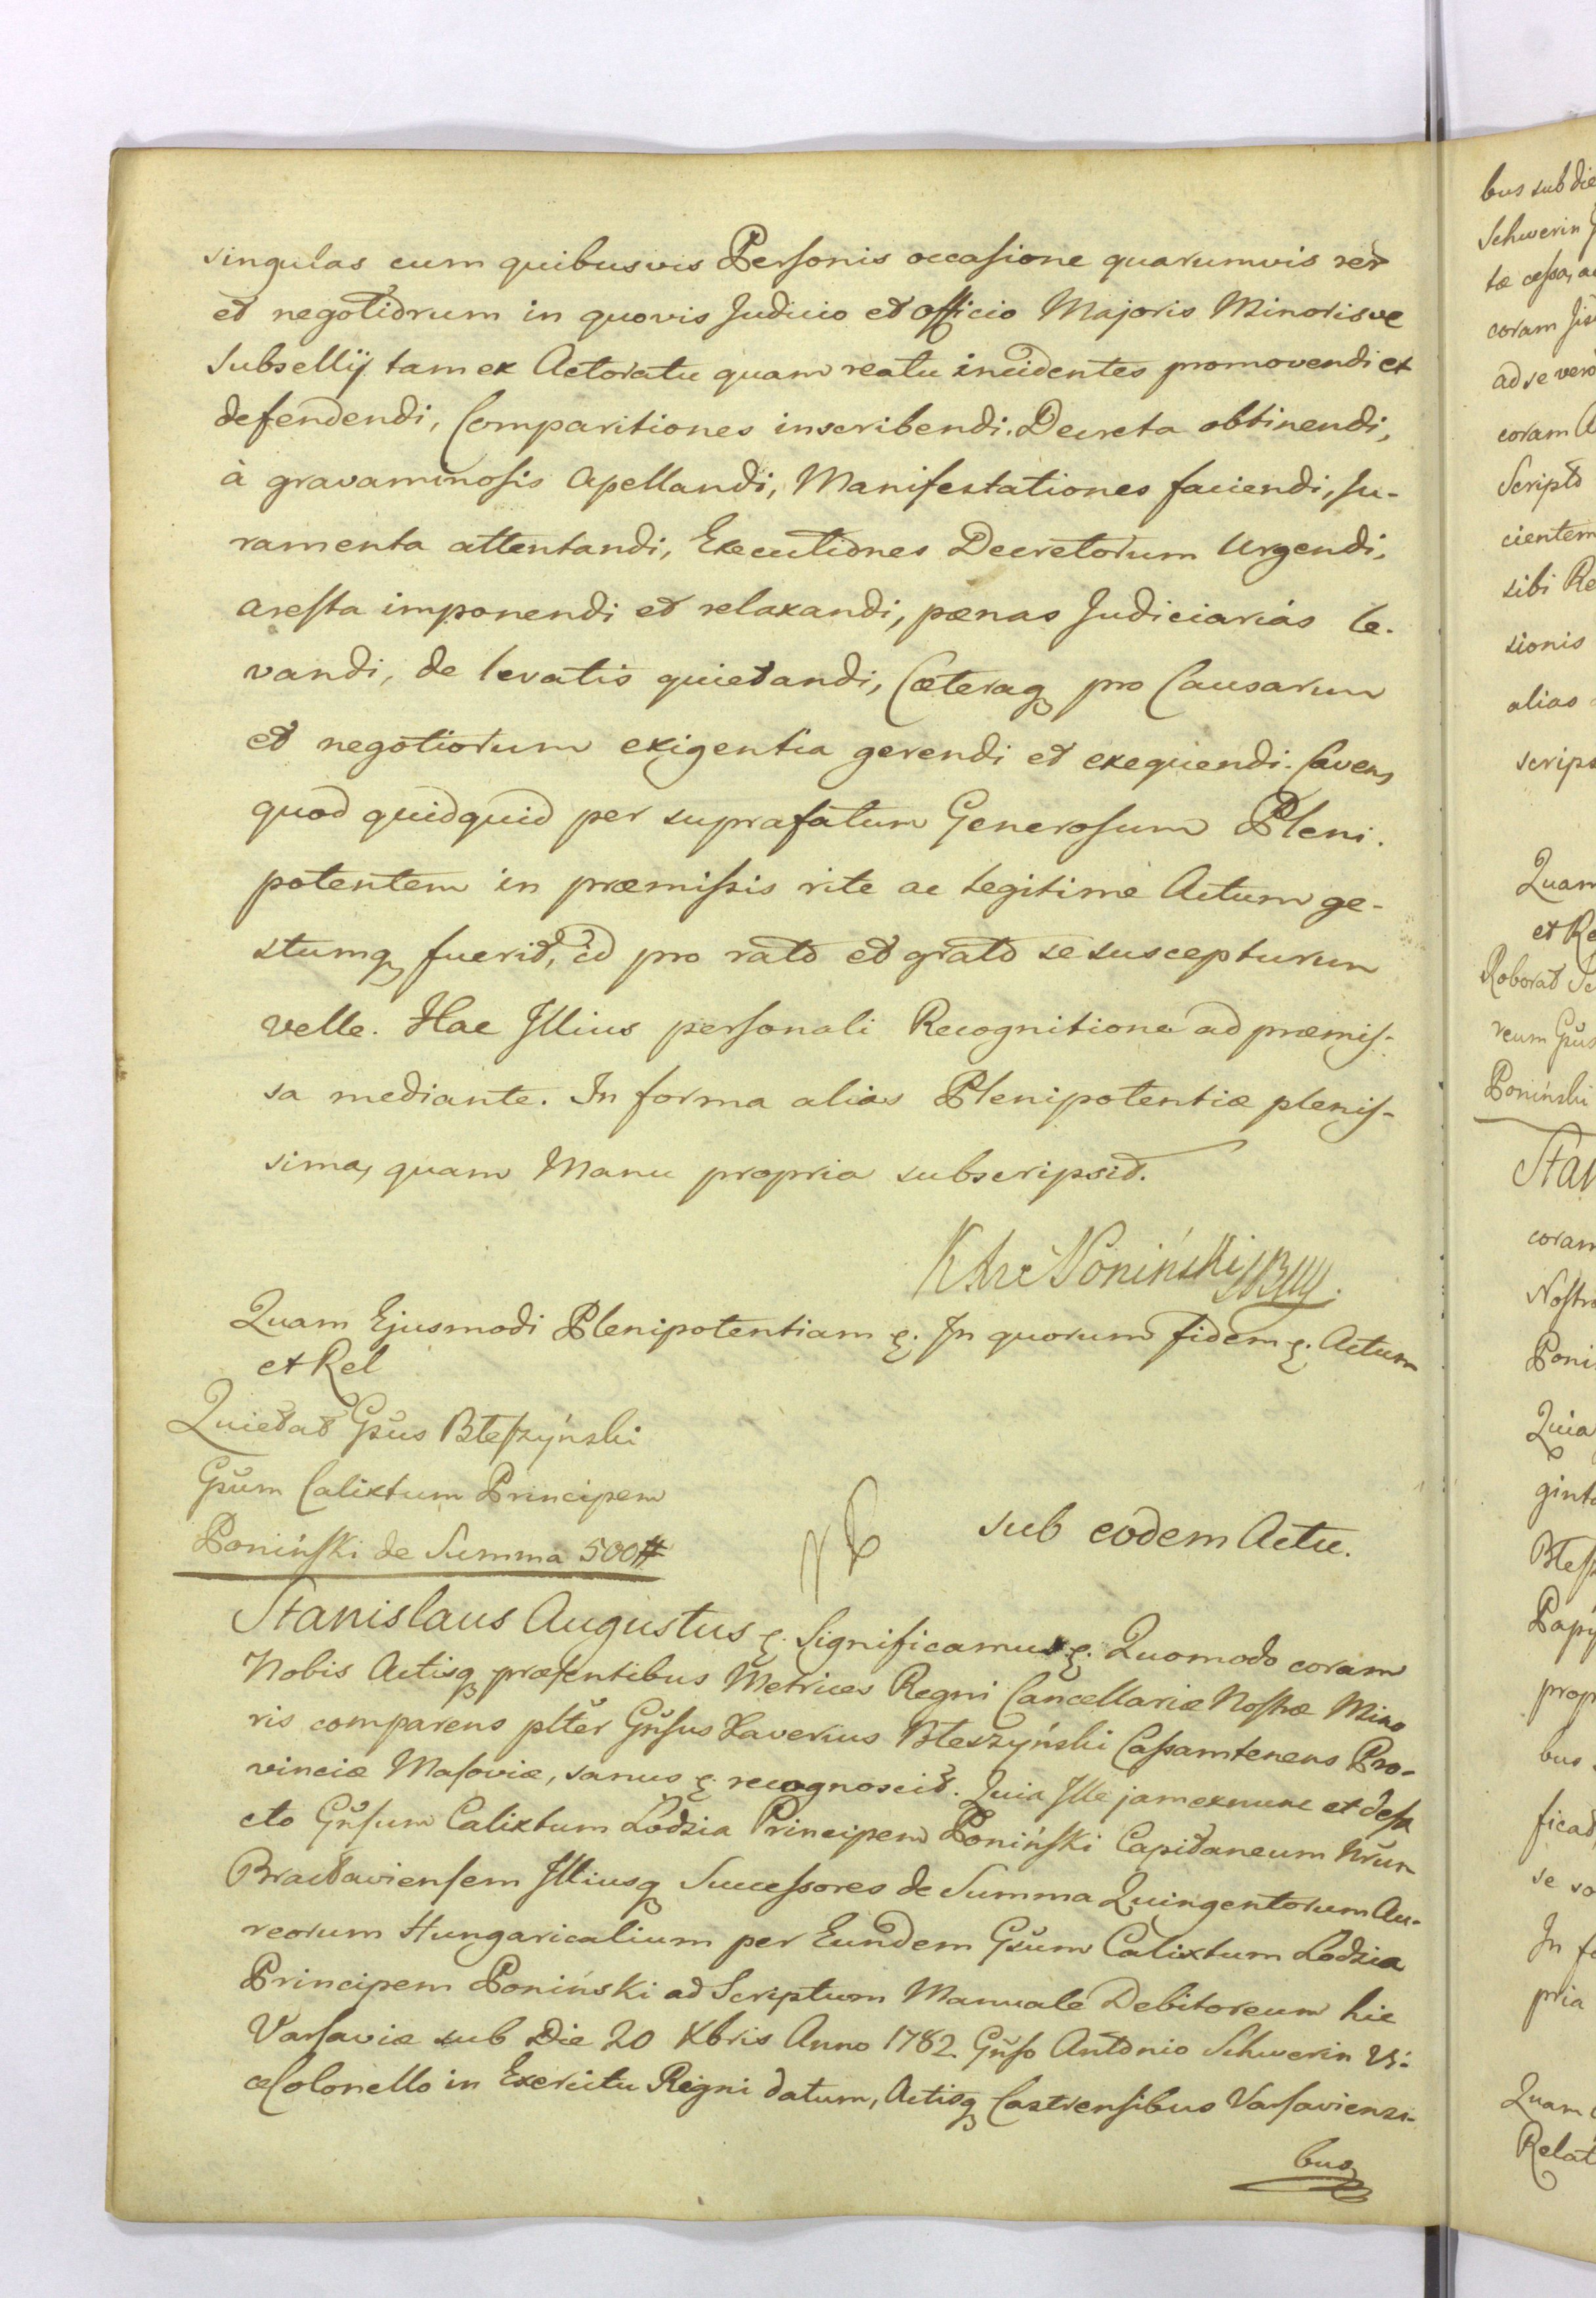 singulas cum quibusvis Personis occasione quarumvis rer̃
et negotiorum in quovis Judicio et officio Majoris Minorisve
Subsellij tam ex Actoratu quam reatu incidentes promovendi et
defendendi, Comparitiones inscribendi. Decreta obtinendi,
à gravaminosis Apellandi, Manifestationes faciendi, Ju-
ramenta attentandi, Executiones Decretorum Urgendi,
aresta imponendi et relaxandi, pœnas Judiciarias le-
vandi, de levatis quietandi, Cæteraq pro Causarum
et negotiorum exigentia gerendi et exequendi. Cavens
quod quidquid per suprafatum Generosum Pleni-
potentem in præmissis rite ac legitime Actum ge-
stumq fuerit, id pro rato et grato se suscepturum
velle. Hac Illius personali Recognitione ad præmis-
sa mediante. In forma alias Plenipotentiæ plenis-
sima, quam Manu propria subscripsit.
Poniński
Quam Ejusmodi Plenipotentiam ę. In quorum fidem ę. Actum
et Rel
Quietat Gsũs Błeszyński
Gsũm Calixtum Principem
Poniński de Summa 500#
sub eodem Actu.
Stanislaus Augustus ę. Significamus ę. Quomodo coram
Nobis Actisq præsentibus Metrices Regni Cancellariæ Nostræ Mino
ris comparens plt̃er Gñsus Xaverius Błeszyński Capamtenens Pro-
vinciæ Masoviæ, sanus ę. recognoscit. Quia Ille jam exnunc et defa
cto Gñsum Calixtum Lodzia Principem Poniński Capitaneum Nrũm
Bractaviensem Illiusq Successores de Summa Quingentorum Au-
reorum Hungaricalium per Eundem Gsũm Calixtum Lodzia
Principem Poniński ad Scriptum Manuale Debitoreum hic
Varsaviæ sub Die 20 Xbris Anno 1782. Gñso Antonio Schwerin Vi-
ceColonello in Exercitu Regni datum, Actisq Castrensibus Varsaviensi-
bus
bus sub die
Schwerin
coram
ad se vero
coram
Scripto
cientem
sibi Re
sionis
alias
scrips
Quam
et Re
Roborat
reum Gsũs
Poniński
Stan
coram
Nostr
Poni
Quia
gint
Błesz
Papi
prop
bus
ficat
se
In fo
pria
Quam
Relat